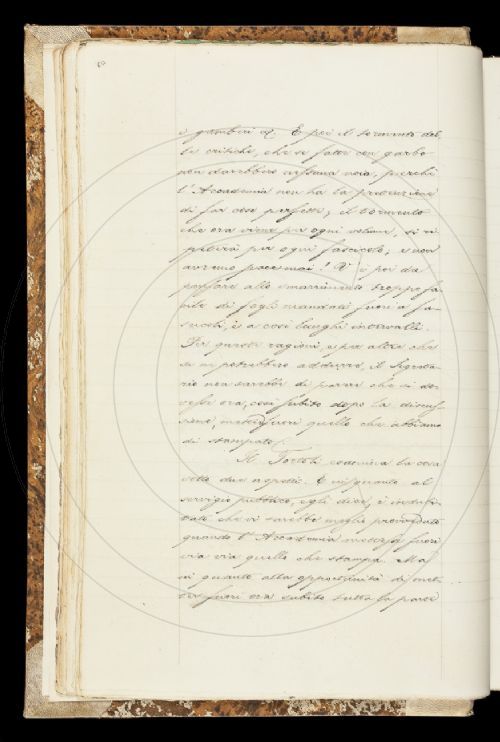 i gamberi &. E poi il tormento del-
le critiche, che se fatte con garbo
non darebbero nessuna noia, perchè
l'Accademia non ha la pretensione
di far cose perfette; il tormento
che ora viene per ogni volume, si ri
peterà per ogni fascicolo; e non
avremo pace mai! V'è poi da
pensare allo smarrimento troppo fa-
cile di fogli mandati fuori a fa-
scicoli, e a così lunghi intervalli.
Per queste ragioni, e per altre che
se ne potrebbero addurre, il Segreta-
rio non sarebbe di parere che si do-
vesse ora, così subito dopo la discus-
sione, metter fuori quello che abbiamo
di stampato.
Il Tortoli considera la cosa
sotto due aspetti. E in quanto al
servizio pubblico, egli dice, è indubi-
tato che vi sarebbe meglio provveduto
quando l'Accademia mettesse fuori
via via quello che stampa. Ma
in quanto alla opportunità di met
ter fuori ora subito tutta la parte